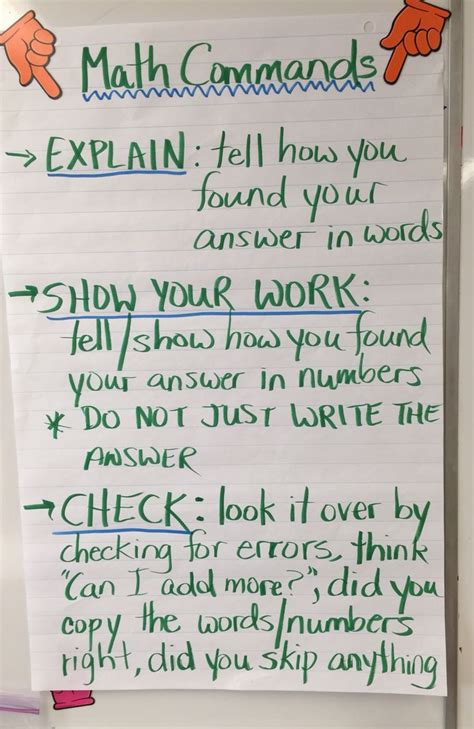 Math Commands
→ EXPLAIN: tell how you
found your
answer in words
→ SHOW YOUR WORK:
tell/show how you found
your answer in numbers
* DO NOT JUST WRITE THE
ANSWER
→ CHECK: look it over by
checking for errors, think
"Can I add more?", did you
copy the words/numbers
right, did you skip anything